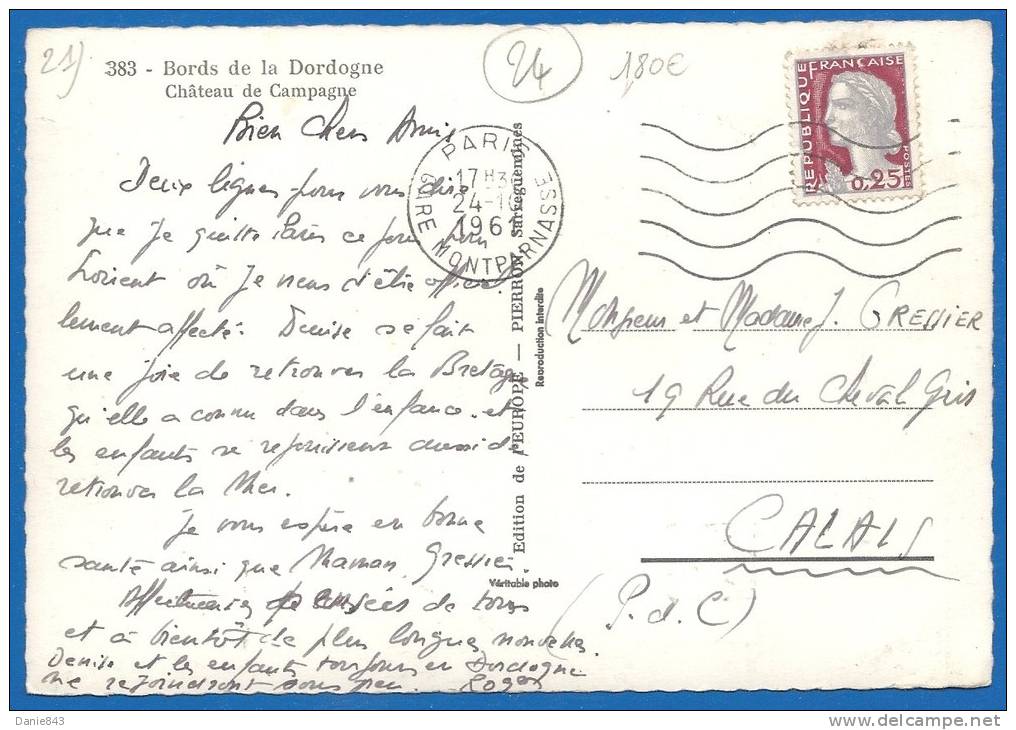 21)
383 - Bords de la Dordogne
Château de Campagne
24
180€
Bien Chers Amis
Deux lignes pour vous dire
que je quitte Paris ce jour pour
Lorient où je viens d'être officiel
lement affecté. Denise se fait
une joie de retrouver la Bretagne
qu'elle a connu dans l'enfance. et
les enfants se rejouissent aussi de
retrouver la Mer.
Je vous espère en bonne
santé ainsi que Maman Gressier.
Affectueuses pensées de tous
et à bientôt de plus longues nouvelles.
Denise et les enfants toujours en Dordogne
me rejoindront sous peu. Roger
PARIS
17H3
24-10
1961
GARE MONTPARNASSE
Edition de l'EUROPE — PIERRON, Sarreguemines
Reproduction interdite
Véritable photo
REPUBLIQUE FRANÇAISE
POSTES
0,25
Monsieur et Madame J. GRESSIER
19 Rue du Cheval Gris
CALAIS
(P. d. C)
Danie843
delcampe.net